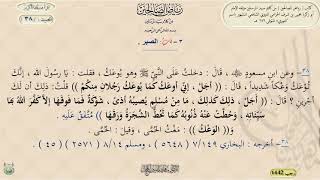 رياض الصالحين
٣ - باب: الصبر
٣٨- وعن ابن مسعودٍ ، قَالَ: دخلتُ على النبيِّ ﷺ وهو يُوعَكُ، فقلت: يا رسولَ الله، إنَّكَ
تُوعَكُ وَعْكًا شَدِيدًا، قَالَ: (( أَجَلْ، إنِّي أُوعَكُ كما يُوعَكُ رَجُلانِ مِنكُمْ )) قلْتُ: ذلِكَ أن لَكَ
أجْرَينِ ؟ قَالَ: (( أَجَلْ، ذلِكَ كَذلِكَ، مَا مِنْ مُسلِمٍ يُصيبُهُ أذىً ، شَوْكَةٌ فَمَا فَوقَهَا إلاَّ كَفَّرَ اللهُ بهَا
سَيِّئَاتِهِ ، وَحُطَّتْ عَنْهُ ذُنُوبُهُ كَمَا تَحُطُّ الشَّجَرَةُ وَرَقَهَا )) مُتَّفَقٌ عَلَيهِ .
و(( الوَعْكُ )): مَغْثُ الحُمَّى ، وَقيلَ : الحُمَّى .
٣٨ - أخرجه : البخاري ٧/١٤٩ (٥٦٤٨) ، ومسلم ٨/١٤ (٢٥٧١) (٤٥) .
1442